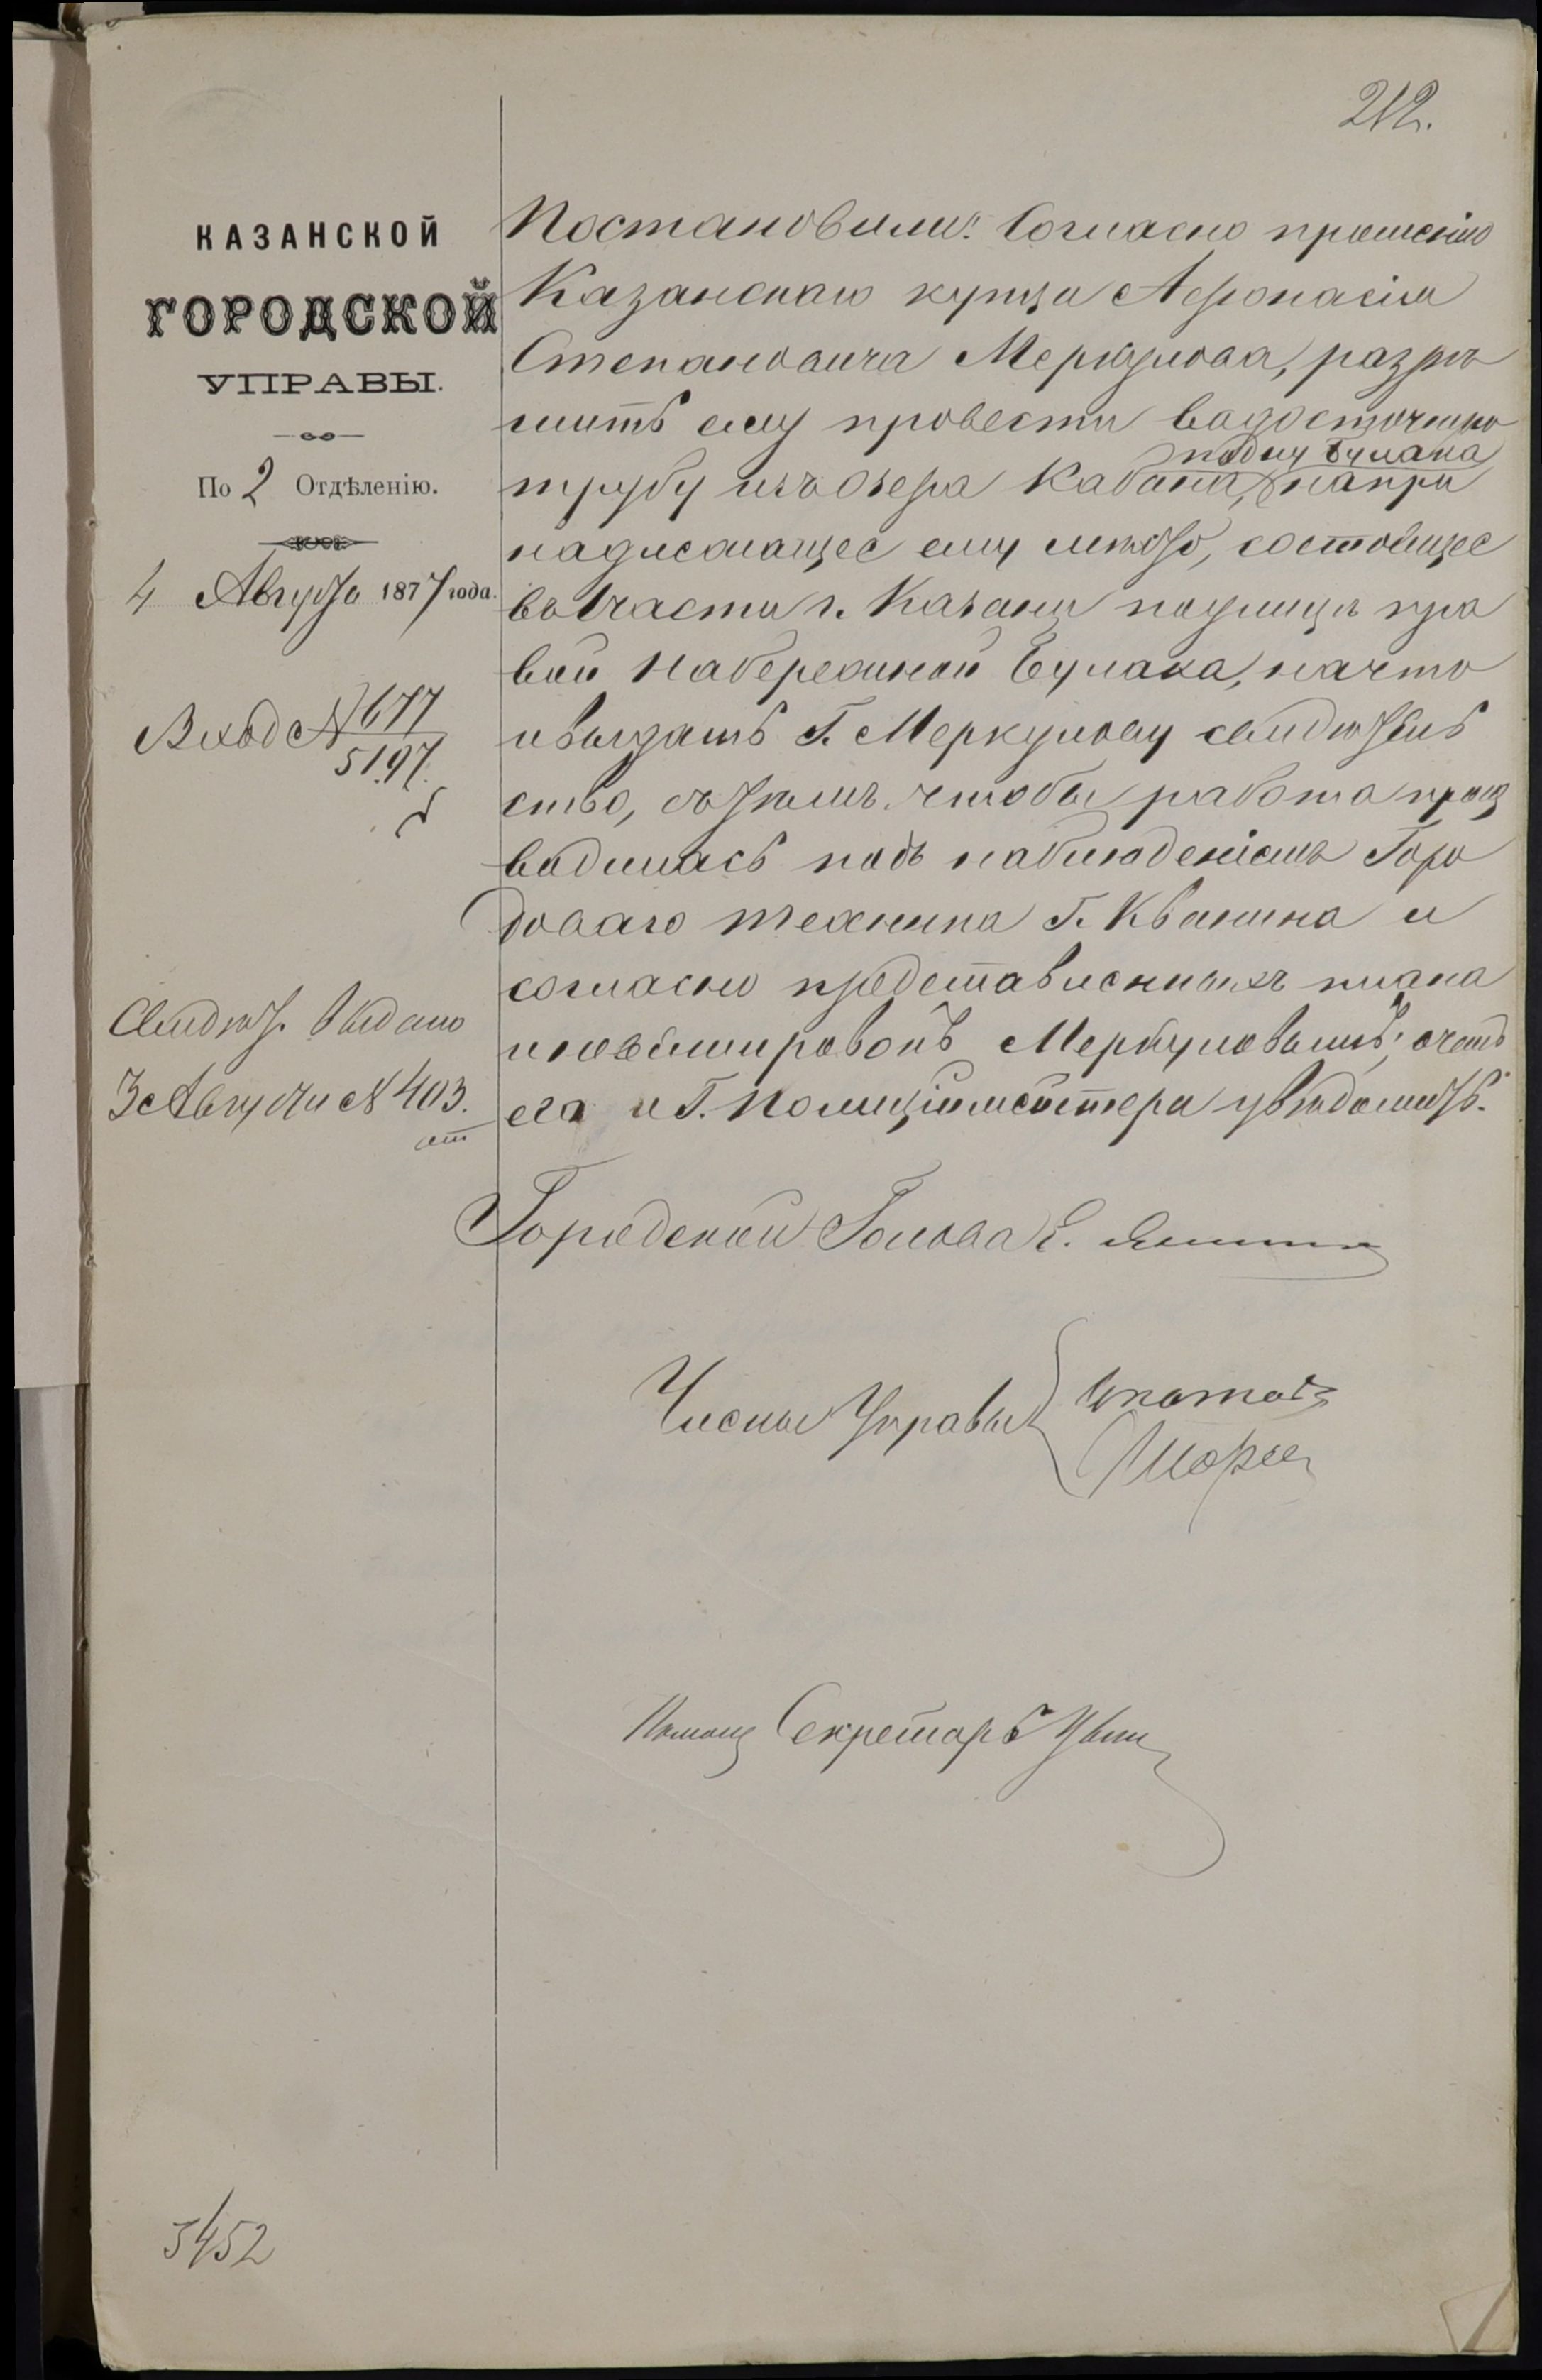 212.
КАЗАНСКОЙ
ГОРОДСКОЙ
УПРАВЫ.
По 2 Отдѣленію.
4 Августа 1877 года.
Вход № 677
5197.
Свидѣт. выдано
3 Августа № 403.
Постановили: Согласно прошенію
Казанскаго купца Афонасія
Степановича Меркулова, разрѣ
шить ему провести водосточную
трубу изъ озера Кабана, по дну Булака на при
надлежащее ему место, состоящее
въ 1 части г. Казани по улице пра
вой Набережной Булака, на что
и выдать Г. Меркулову свидѣтель
ство, съ тѣмъ чтобы работа произ
водилась подъ наблюденіемъ Горо
доваго техника Г. Квинина и
согласно представленныхъ плана
и нивелировокъ Меркуловымъ; о чемъ
его и Г. Полиціймейстера увѣдомить.
Городской Голова Е. Янишъ
Члены Управы
Секретарь
3452